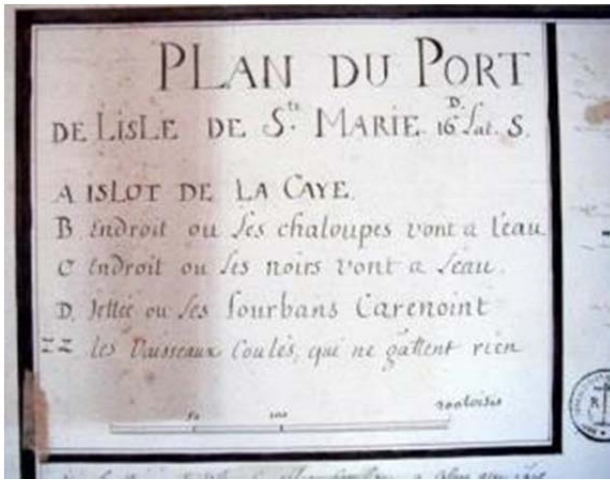 PLAN DU PORT
DE LISLE DE Ste. MARIE. 16 D. Lat. S.
A ISLOT DE LA CAYE.
B Endroit ou les chaloupes vont a l'eau
C Endroit ou les noirs vont a l'eau.
D. Jettée ou les fourbans Carenoint
ZZ les Vaisseaux Coulés, qui ne gattent rien
50 100 200 toises